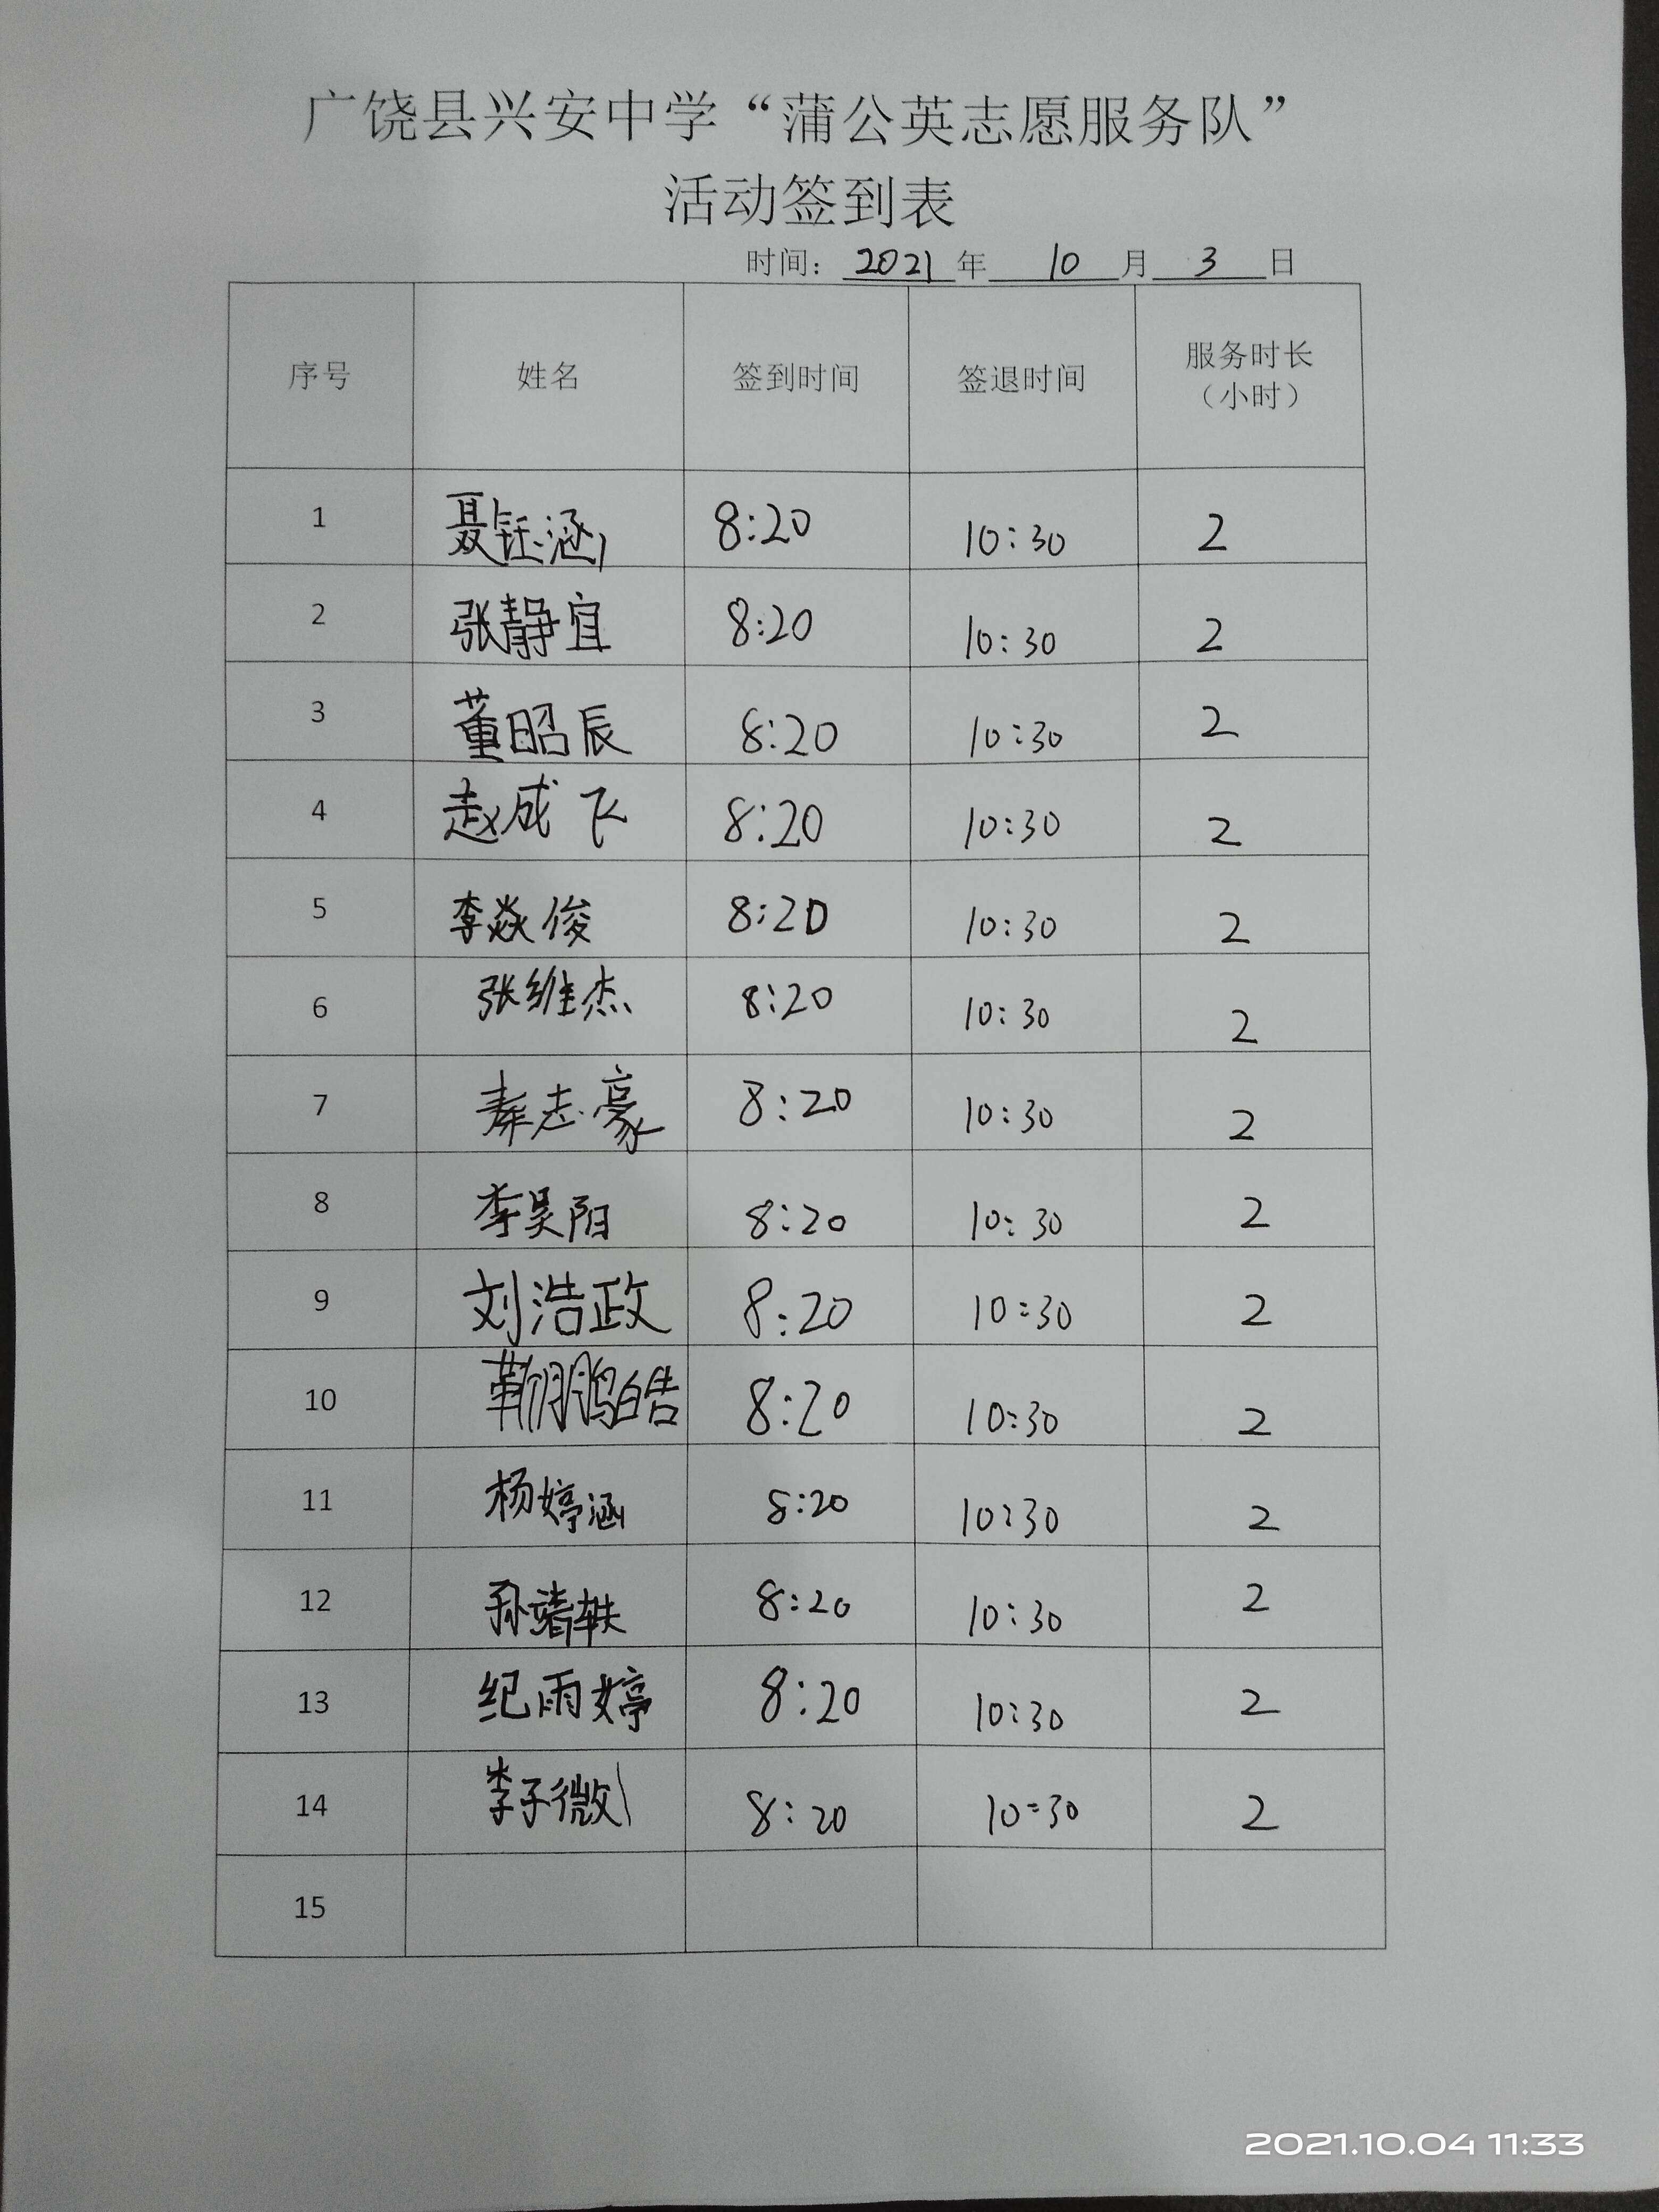 广饶县兴安中学“蒲公英志愿服务队”
活动签到表
时间：2021年10月3日
序号 姓名 签到时间 签退时间 服务时长（小时）
1 聂钰涵 8:20 10:30 2
2 张静宜 8:20 10:30 2
3 董昭辰 8:20 10:30 2
4 赵成飞 8:20 10:30 2
5 李焱俊 8:20 10:30 2
6 张维杰 8:20 10:30 2
7 秦志豪 8:20 10:30 2
8 李昊阳 8:20 10:30 2
9 刘浩政 8:20 10:30 2
10 靳鹏皓 8:20 10:30 2
11 杨婷涵 8:20 10:30 2
12 孙靖轶 8:20 10:30 2
13 纪雨婷 8:20 10:30 2
14 李子微 8:20 10:30 2
15
2021.10.04 11:33